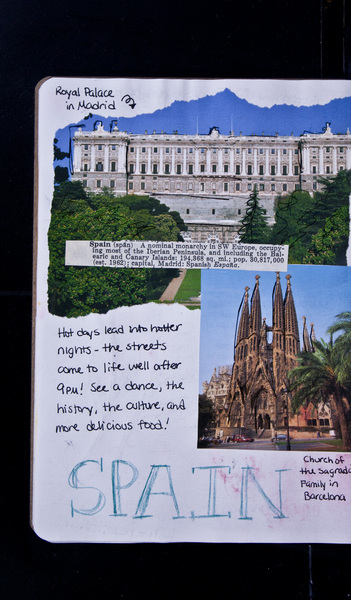 Royal Palace
in Madrid
Spain (spān) A nominal monarchy in SW Europe, occupy-
ing most of the Iberian Peninsula, and including the Bal-
earic and Canary Islands: 194,368 sq. mi.; pop. 30,817,000
(est. 1962); capital, Madrid: Spanish España.
Hot days lead into hotter
nights - the streets
come to life well after
9pm! See a dance, the
history, the culture, and
more delicious food!
Church of
the Sagrada
Family in
Barcelona
SPAIN